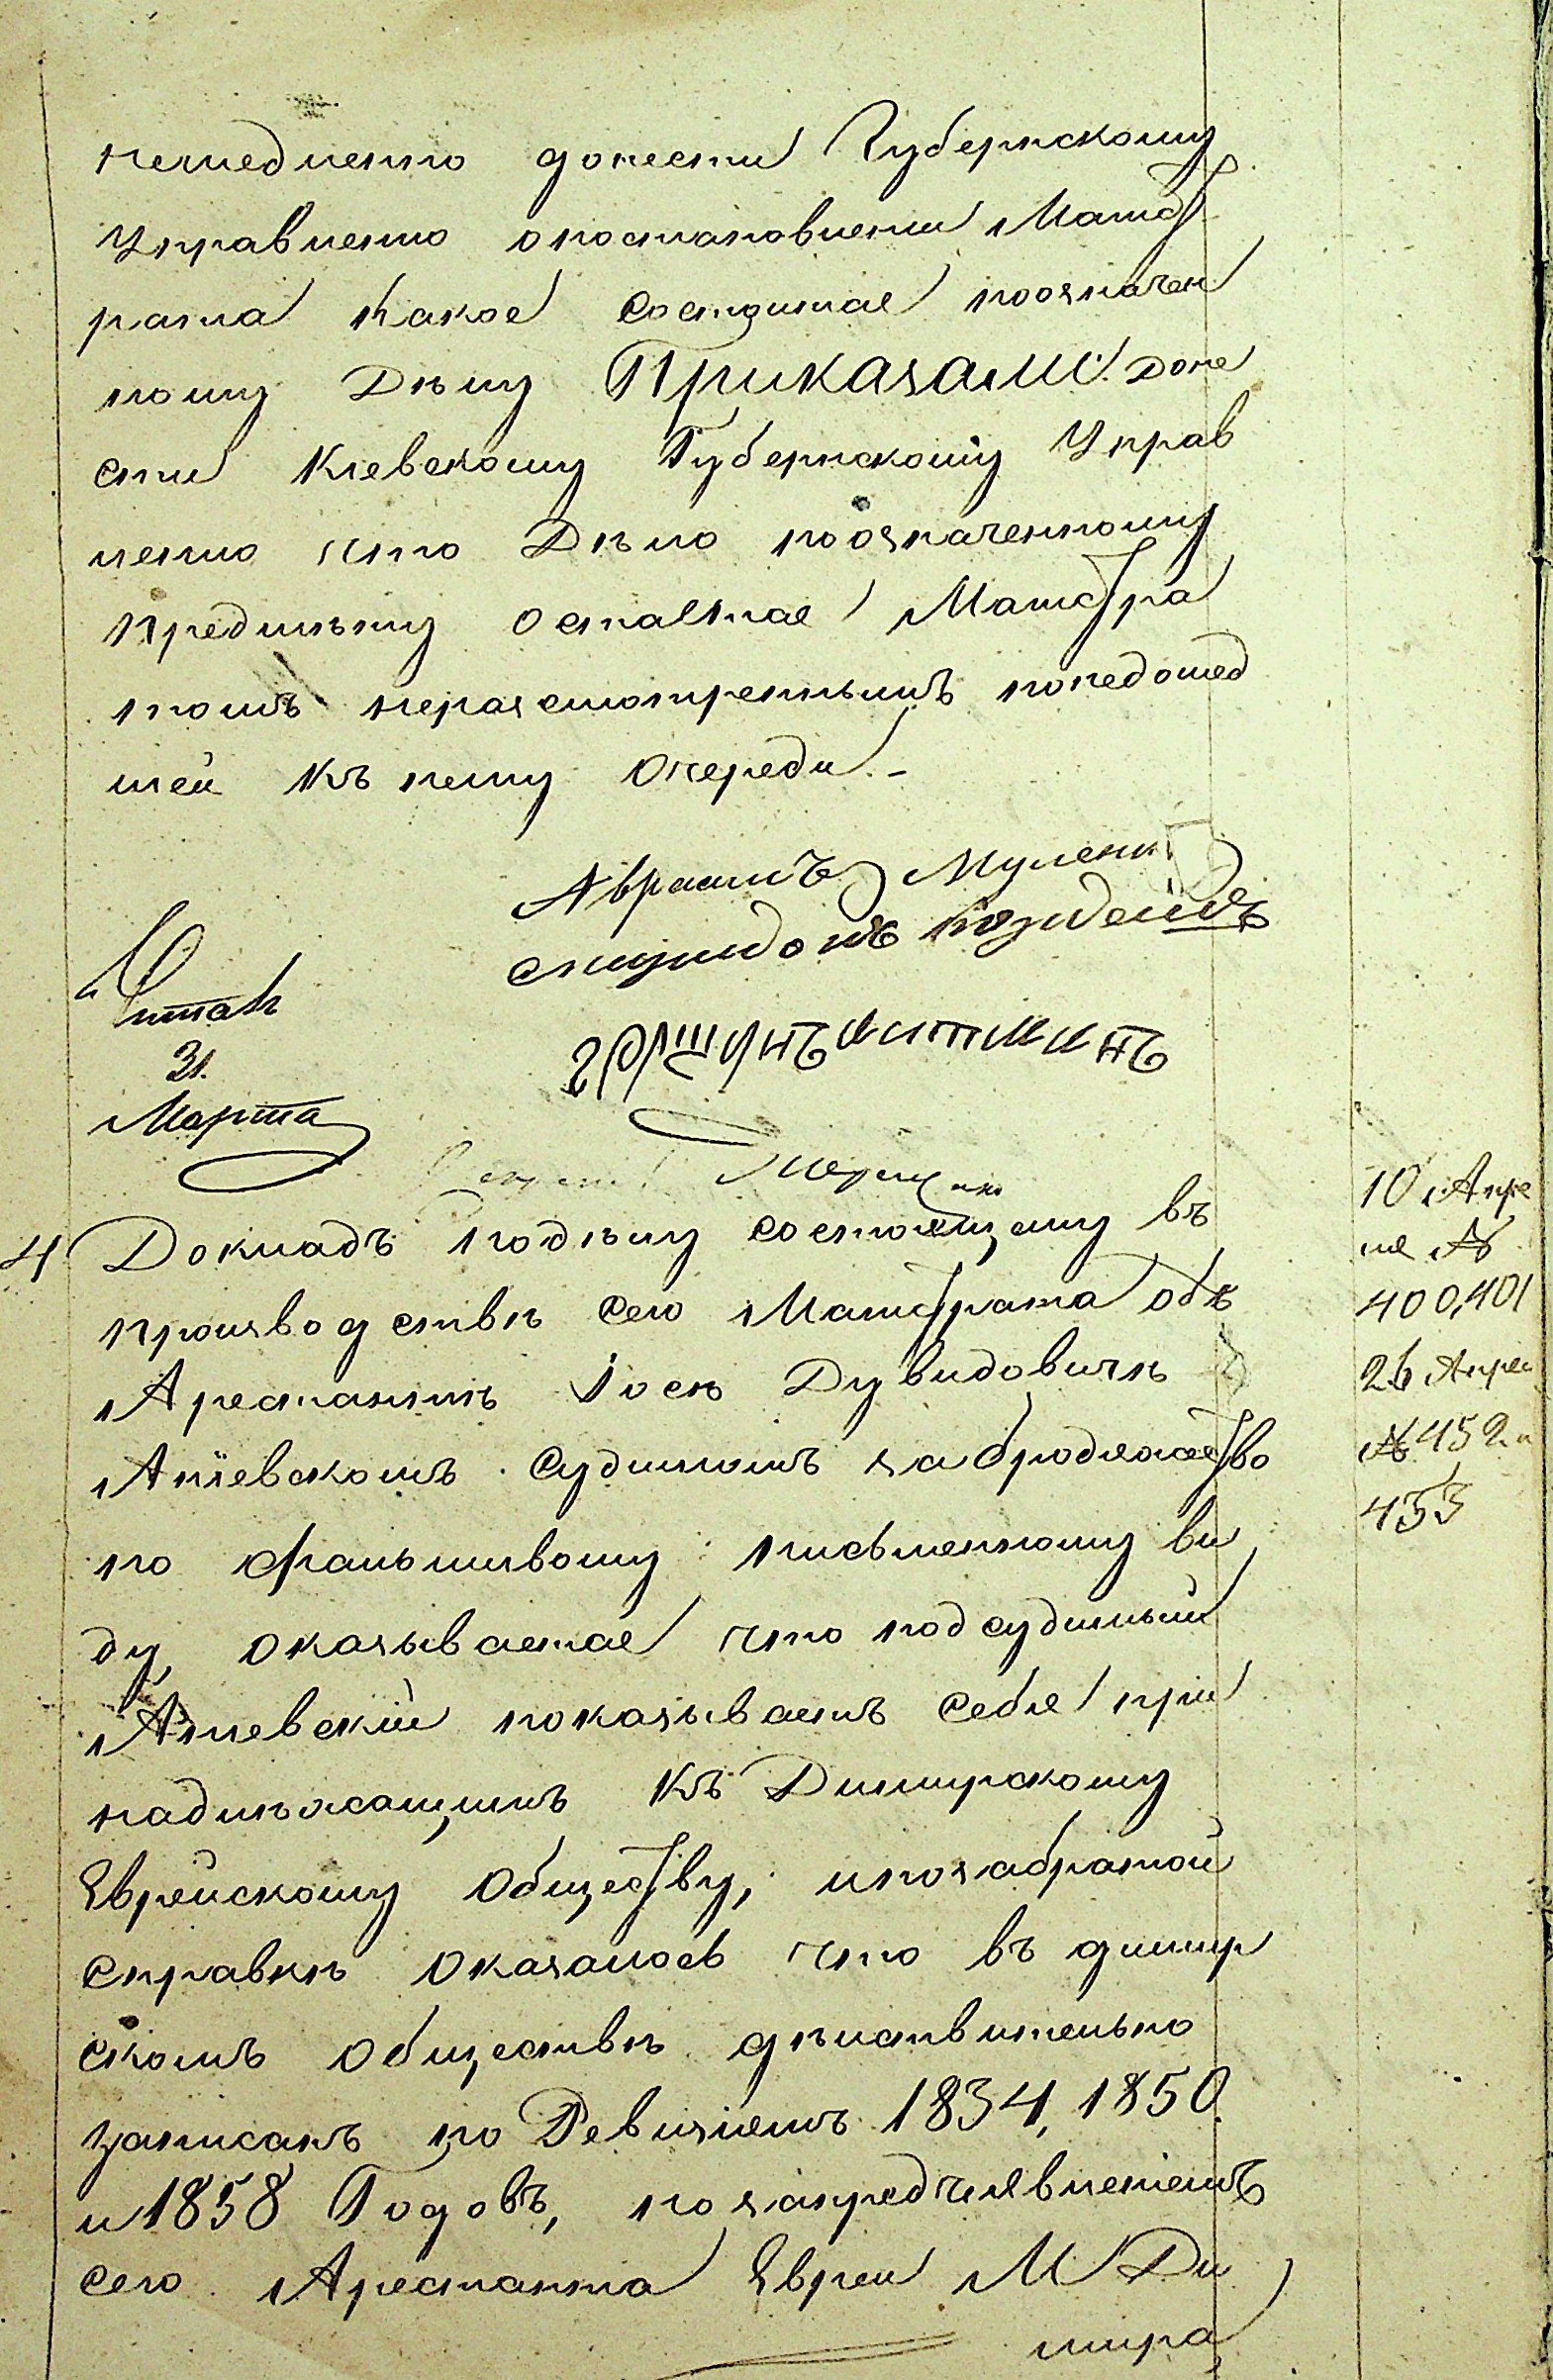 немедленно донести Губернскому
Управленію опостановленіи Магист
рата Какое состоится поозначен
ному Дѣлу Приказали: Доне
сти Кіевскому Губернскому Управ
ленію что Дѣло поозначенному
предмѣту остается Магистра
томъ неразсмотреннымъ понедошед
шей къ нему Очереди. -
Авраамъ
Гершунъ Итикинъ
Читалъ
31.
Марта
4 Докладъ Подѣлу состоящему въ
производствѣ сего Магистрата объ
Арестантѣ Іосѣ Дувидовичѣ
Агіевскомъ судимомъ забродяжество
по фальшивому письменному ви
ду, оказывается что подсудимый
Агіевскій показываетъ себя при
надлѣжащимъ къ Димирскому
Еврейскому Обществу, ипозабратой
справкѣ оказалось что въ димир
скомъ обществѣ дѣйствительно
записанъ по Ревизіямъ 1834, 1850
и 1858 Годовъ, позапредъявленіемъ
сего Арестанта Евреи М Ди
мира
10 Апре
ля №
400, 401
26 Апрел
№ 452 и
453